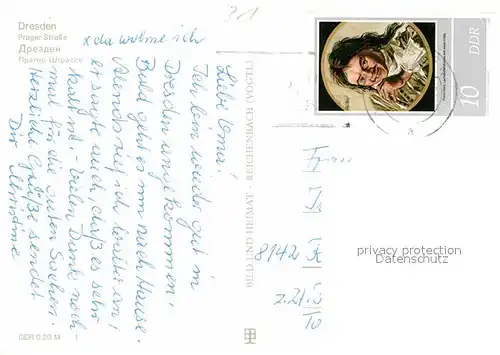 Dresden
Prager Straße
Дрезден
Прагер Штрассе
x da wohne ich
Liebe Oma!
Ich bin wieder gut in
Dresden angekommen.
Bald geht es nun nach Hause.
Abends rief ich Walter an,
er sagte auch, daß es sehr
kalt ist. Vielen Dank noch
mal für die guten Sachen.
Herzliche Grüße sendet
Dir Christine
DDR 0,20 M 1
BILD UND HEIMAT · REICHENBACH (VOGTL)
DDR
10
Frau
J.
8142 R
privacy protection
Datenschutz
10